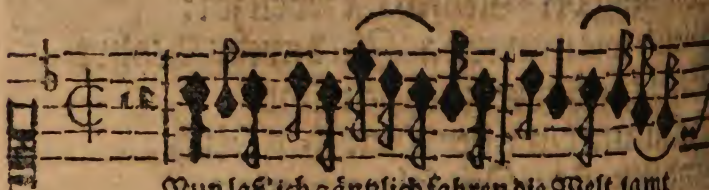 Nun laß' ich gäntzlich fahren die Welt samt